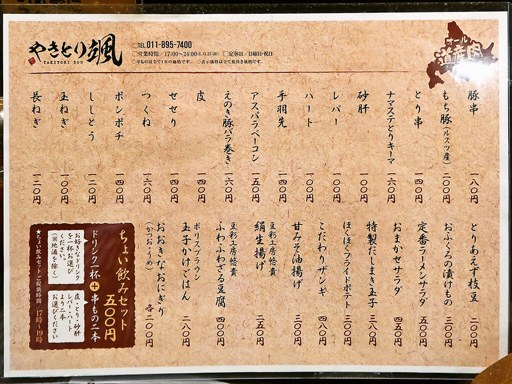 やきとり颯
YAKITORI SOU
TEL 011-895-7400
オール
道産肉
豚串 一八〇円
もち豚(ルスツ産) 二〇〇円
とり串 一四〇円
ナマステとりキーマ 一六〇円
砂肝 一〇〇円
レバー 一〇〇円
ハート 一〇〇円
手羽先 一三〇円
アスパラベーコン 一五〇円
えのき豚バラ巻き 一六〇円
皮 一〇〇円
セセリ 一四〇円
つくね 一六〇円
ボンボチ 一四〇円
ししとう 一〇〇円
玉ねぎ 一〇〇円
長ねぎ 一二〇円
とりあえず枝豆 二〇〇円
おふくろの漬けもの 三〇〇円
定番ラーメンサラダ 五五〇円
おまかせサラダ
特製だしまき玉子 三八〇円
ほくほくフライドポテト 三〇〇円
こだわりザンギ 四八〇円
甘みそ油揚げ 三〇〇円
豆彩工房悠貴
絹生揚げ 二五〇円
豆彩工房悠貴
ふわふわざる豆腐 四〇〇円
ポリスブラウン
玉子かけごはん 二八〇円
おおきなおにぎり
(かつお・うめ) 各二〇〇円
ちょい飲みセット
五〇〇円
ドリンク一杯+串もの二本
お好きなドリンク
を一杯お選び
ください。
(※地酒を除く)
皮・とり・砂肝
レバー・ハート
より二本
お選びください
★ちょい飲みセットご提供時間 17時〜19時